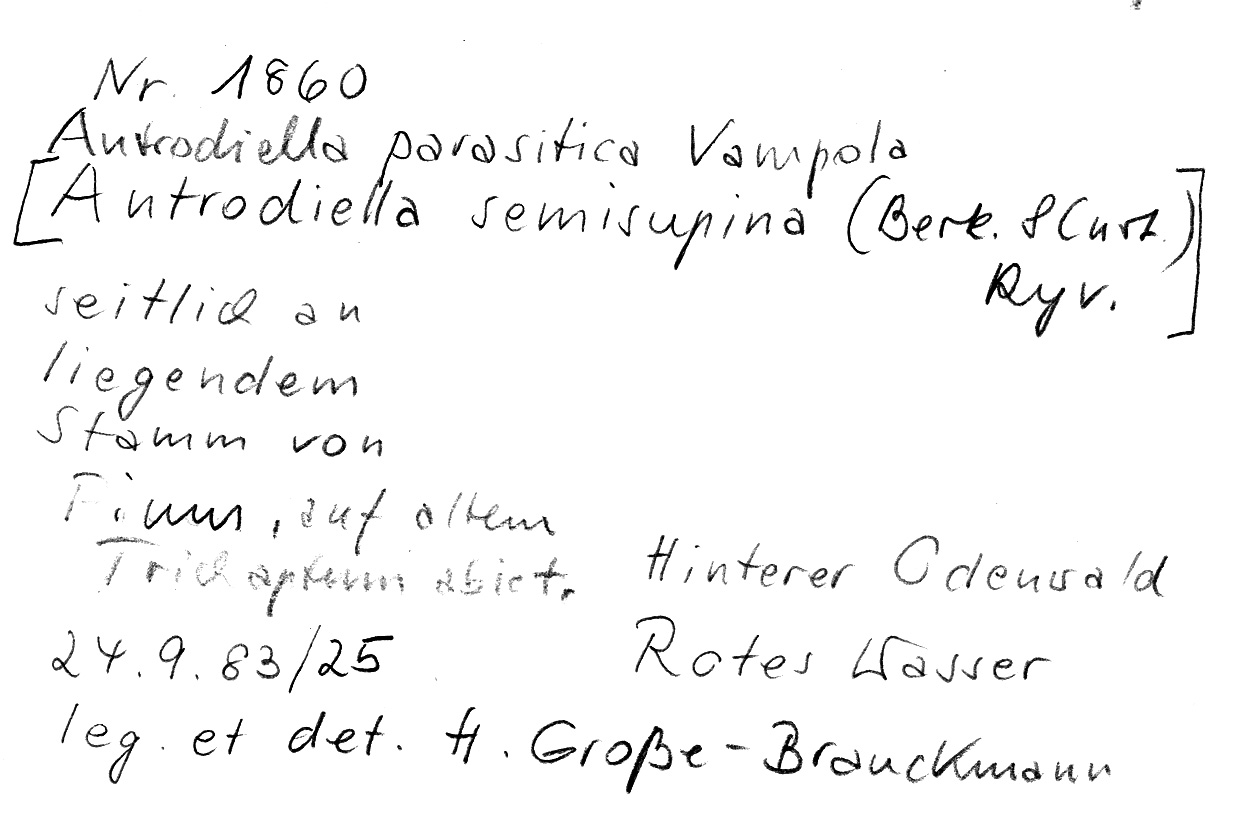 Nr. 1860
Antrodiella parasitica Vampola
[Antrodiella semisupina (Berk. & Curt.)
Ryv.]
seitlich an
liegendem
Stamm von
Pinus, auf altem
Trichaptum abiet.
Hinterer Odenwald
24.9.83/25
Rotes Wasser
leg. et det. H. Große-Brauckmann